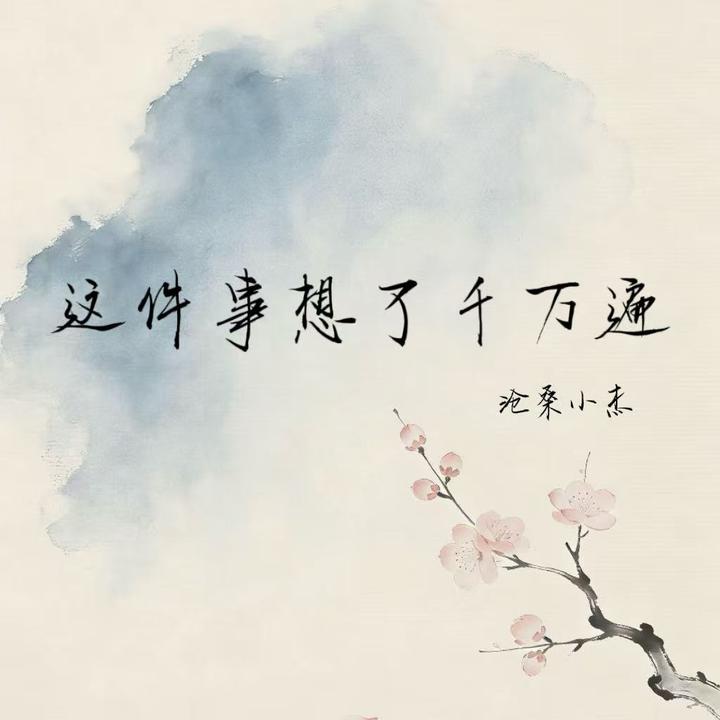 这件事想了千万遍
沧桑小杰